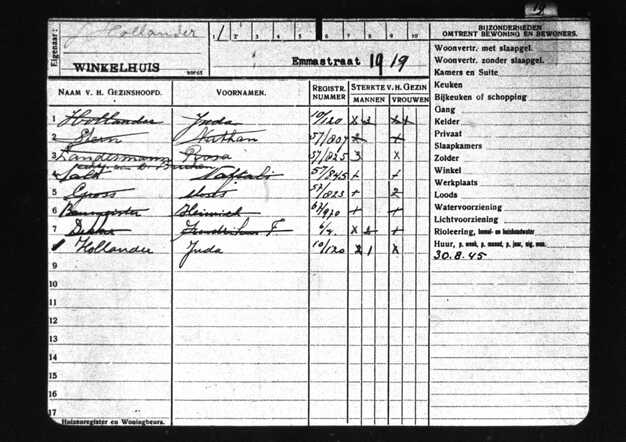 19
Eigenaar: J Hollander
1 / 2 3 4 5 6 7 8 9 10
BIJZONDERHEDEN
OMTRENT BEWONING EN BEWONERS.
WINKELHUIS
Emmastraat 19 19
Woonvertr. met slaapgel.
Woonvertr. zonder slaapgel.
Kamers en Suite
Keuken
Bijkeuken of schopping
Gang
Kelder
Privaat
Slaapkamers
Zolder
Winkel
Werkplaats
Loods
Watervoorziening
Lichtvoorziening
Rioleering, hemel- en huishoudwater
Huur, p. week, p. maand, p. jaar, eig. won.
30.8.45
NAAM V. H. GEZINSHOOFD. VOORNAMEN. REGISTR. NUMMER STERKTE V. H. GEZIN
MANNEN VROUWEN
1 Hollander Juda 10/120 x 3 x x
2 Stern Nathan 57/807 2 +
3 Landermann Rosa 57/825 3 x
4 Naftali 57/845 + +
5 Gross 57/823 + 2
6 Baumgeister Heinrich 67/920 + +
7 Dekker F 6/4 x 2 +
8 Hollander Juda 10/120 2 1 x
9
10
11
12
13
14
15
16
17
Huizenregister en Woningbeurs.